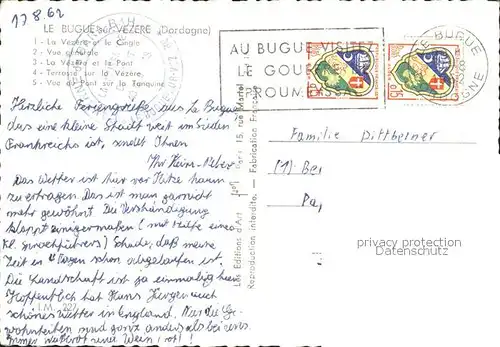 17.8.62
LE BUGUE-sur-VEZERE (Dordogne)
1 - La Vézère et le Cingle
2 - Vue générale
3 - La Vézère et le Pont
4 - Terrasse sur la Vézère
5 - Vue du Pont sur la
AU BUGUE VISITEZ
LE GOU
LE BUGUE
DORDOGNE
0,15
0,15
Herzliche Feriengrüße aus Le Bugue
das eine kleine Stadt weit im Süden
Frankreichs ist, sendet Ihnen
Ihr
Das Wetter ist hier vor Hitze kaum
zu ertragen. Das ist man garnicht
mehr gewöhnt. Die Verständigung
klappt einigermaßen (mit Hilfe eines
kl. Sprachführers). Schade, daß unsere
Zeit in Tagen schon abgelaufen ist.
Die Landschaft ist ja einmalig hier
Hoffentlich hat Hans Jürgen auch
schönes Wetter in England. Nur die Ge-
wohnheiten sind ganz anders als bei uns.
Immer Weißbrot und Wein, rot!
I.M. 227
Les Editions d'Art
Paris 15, rue Martel
Reproduction interdite. - Fabrication Française
Familie Dittberner
(1) Ber
Pa
privacy protection
Datenschutz